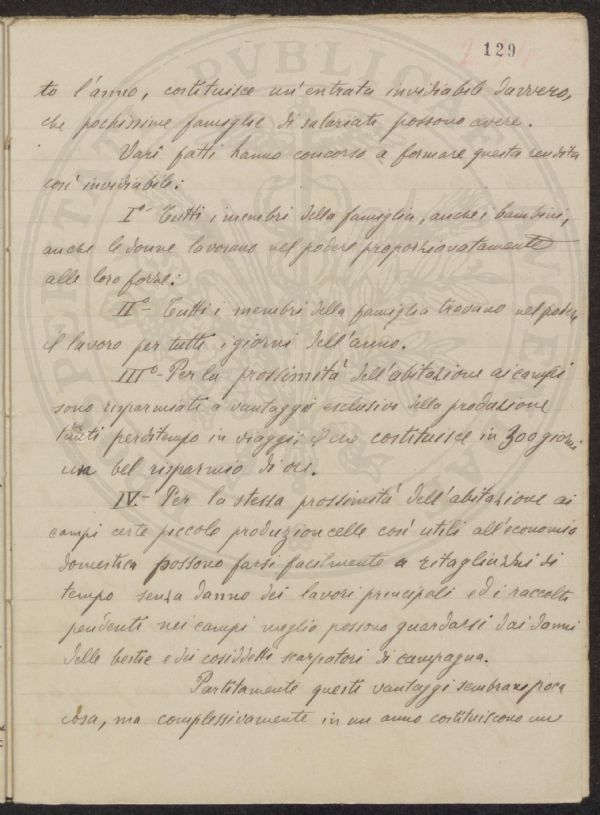 129
to l'anno, costituisce un'entrata invidiabile davvero,
che pochissime famiglie di salariati possono avere.
Vari fatti hanno concorso a formare questa rendita
così invidiabile:
I° - Tutti i membri della famiglia, anche i bambini,
anche le donne lavorano nel podere proporzionatamente
alle loro forze:
II° - Tutti i membri della famiglia trovano nel podere
il lavoro per tutti i giorni dell'anno.
III° - Per la prossimità dell'abitazione ai campi
sono risparmiati a vantaggio esclusivo della produzione
tanti perditempo in viaggi e ciò costituisce in 300 giorni
un bel risparmio di ore.
IV. - Per la stessa prossimità dell'abitazione ai
campi certe piccole produzioncelle così utili all'economia
domestica possono farsi facilmente a ritagliuzzi di
tempo senza danno dei lavori principali ed i raccolti
pendenti nei campi meglio possono guardarsi dai danni
delle bestie e dei cosiddetti scarpatori di campagna.
Partitamente questi vantaggi sembrano poca
cosa, ma complessivamente in un anno costituiscono un